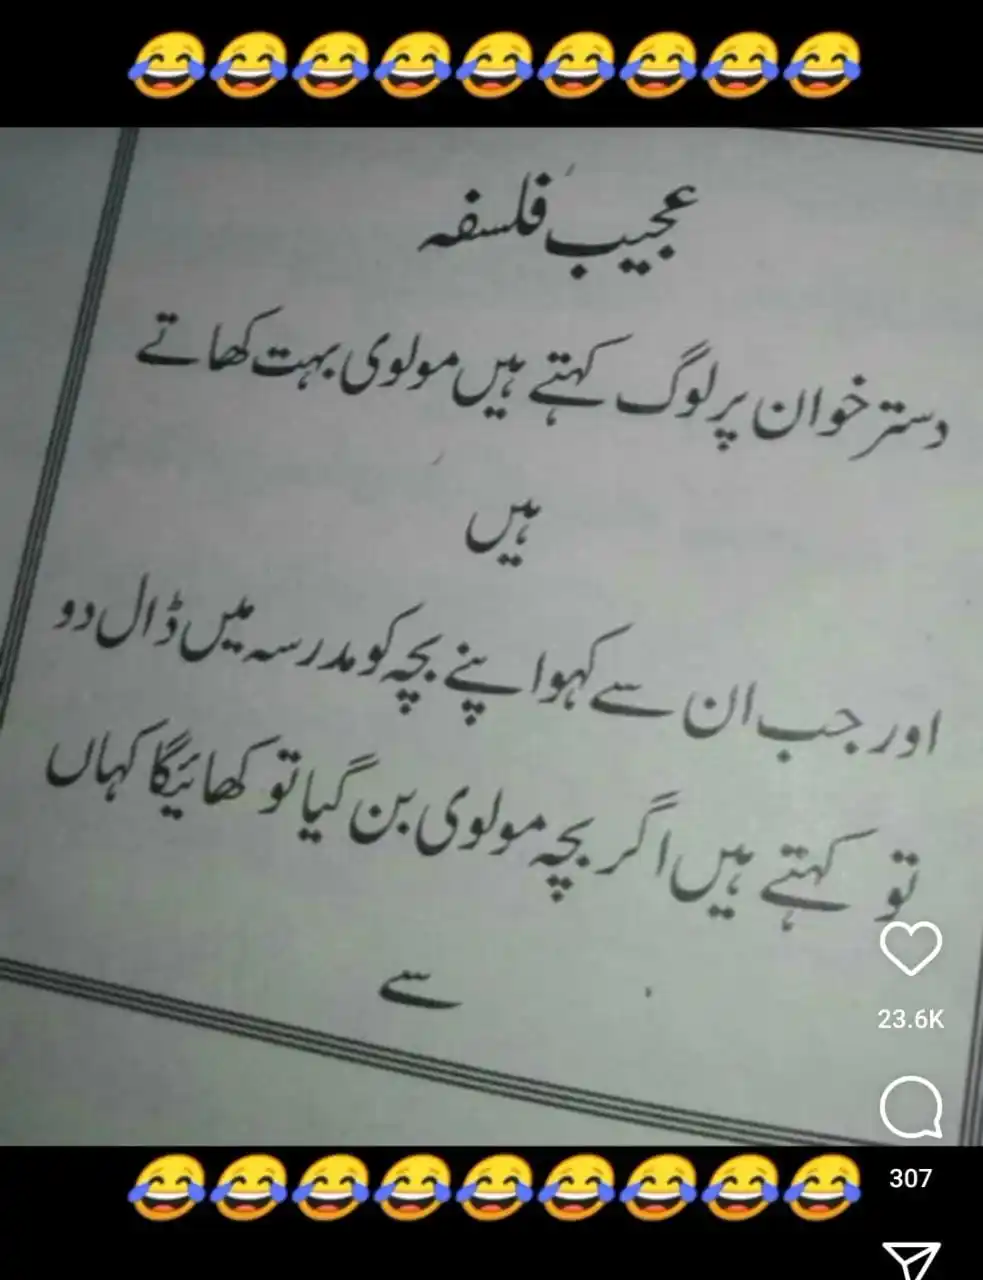 😂😂😂😂😂😂😂😂😂
عجیب فلسفہ
دسترخوان پر لوگ کہتے ہیں مولوی بہت کھاتے
ہیں
اور جب ان سے کہو اپنے بچہ کو مدرسہ میں ڈال دو
تو کہتے ہیں اگر بچہ مولوی بن گیا تو کھائیگا کہاں
سے
23.6K
307
😂😂😂😂😂😂😂😂😂